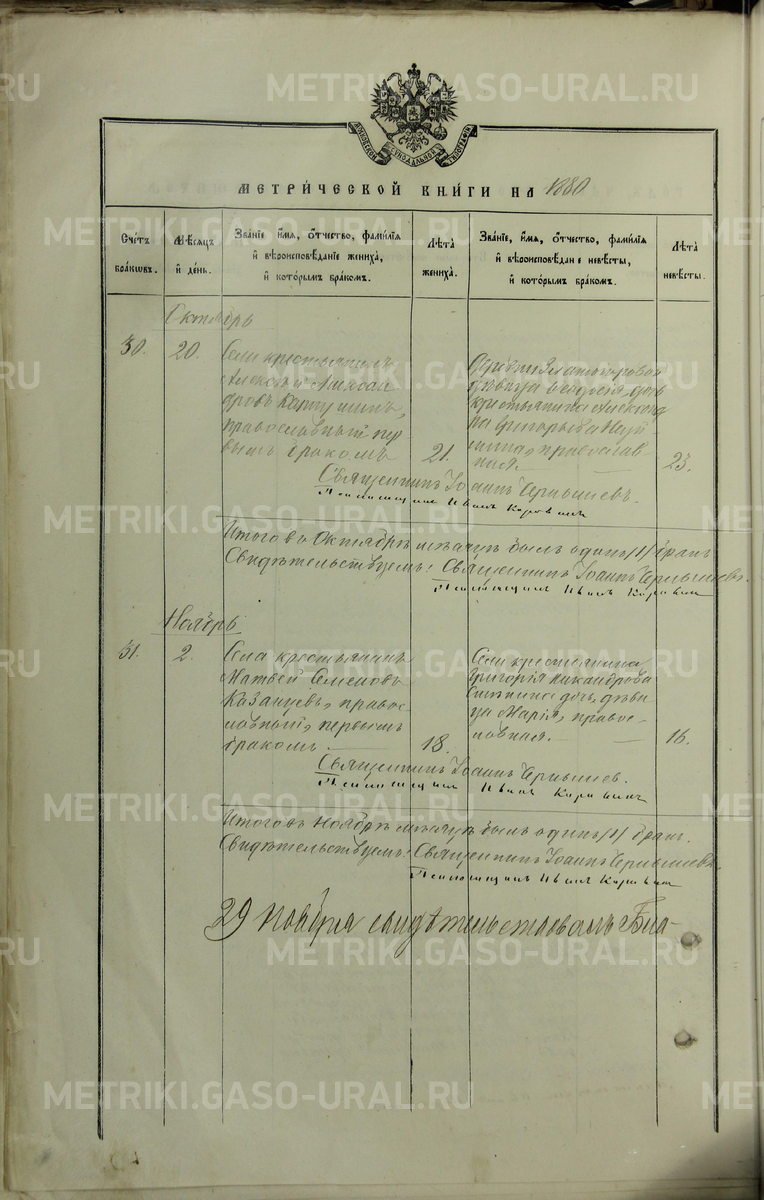 METRIKI.GASO-URAL.RU
МОСКОВСКОЙ СѴНОДАЛЬНОЙ ТИПОГРАФІИ
МЕТРИ́ЧЕСКОЙ КНИ́ГИ НА 1880
Сче́тъ бра́ковъ.
Мѣ́сяцъ и҆ де́нь.
Зва́нїе, и҆́мя, ѻ҆́тчество, фамилїѧ и҆ вѣроисповѣ́данїе жениха̀, и҆ кото́рымъ бра́комъ.
Лѣ́та жениха̀.
Зва́нїе, и҆́мя, ѻ҆́тчество, фамилїѧ и҆ вѣроисповѣ́данїе невѣ́сты, и҆ кото́рымъ бра́комъ.
Лѣ́та невѣ́сты.
Октябрь
30. 20.
Села крестьянинъ
Алексѣй Александ
ровъ
православный пер
вымъ бракомъ
21.
Деревни
дѣвица Ѳеодосія, дочь
крестьянина
Григорьева
православ
ная.
23.
Священникъ Іоаннъ Чернышевъ.
Псаломщикъ Иванъ Коровинъ
Итого въ Октябрѣ мѣсяцѣ былъ одинъ /1/ бракъ
Свидѣтельствуемъ: Священникъ Іоаннъ Чернышевъ.
Псаломщикъ Иванъ Коровинъ
Ноябрь
31. 2.
Села крестьянинъ
Матвей Семеновъ
Казанцевъ, право
славный, первымъ
бракомъ.
18.
Села крестьянина
Григорія Никандрова
дочь, дѣви
ца Марія, право
славная.
16.
Священникъ Іоаннъ Чернышев.
Псаломщикъ Иванъ Коровинъ
Итого въ Ноябрѣ мѣсяцѣ былъ одинъ /1/ бракъ.
Свидѣтельствуемъ: Священникъ Іоаннъ Чернышевъ.
Псаломщикъ Иванъ Коровинъ
29 Ноября свидѣтельствовалъ Бла-